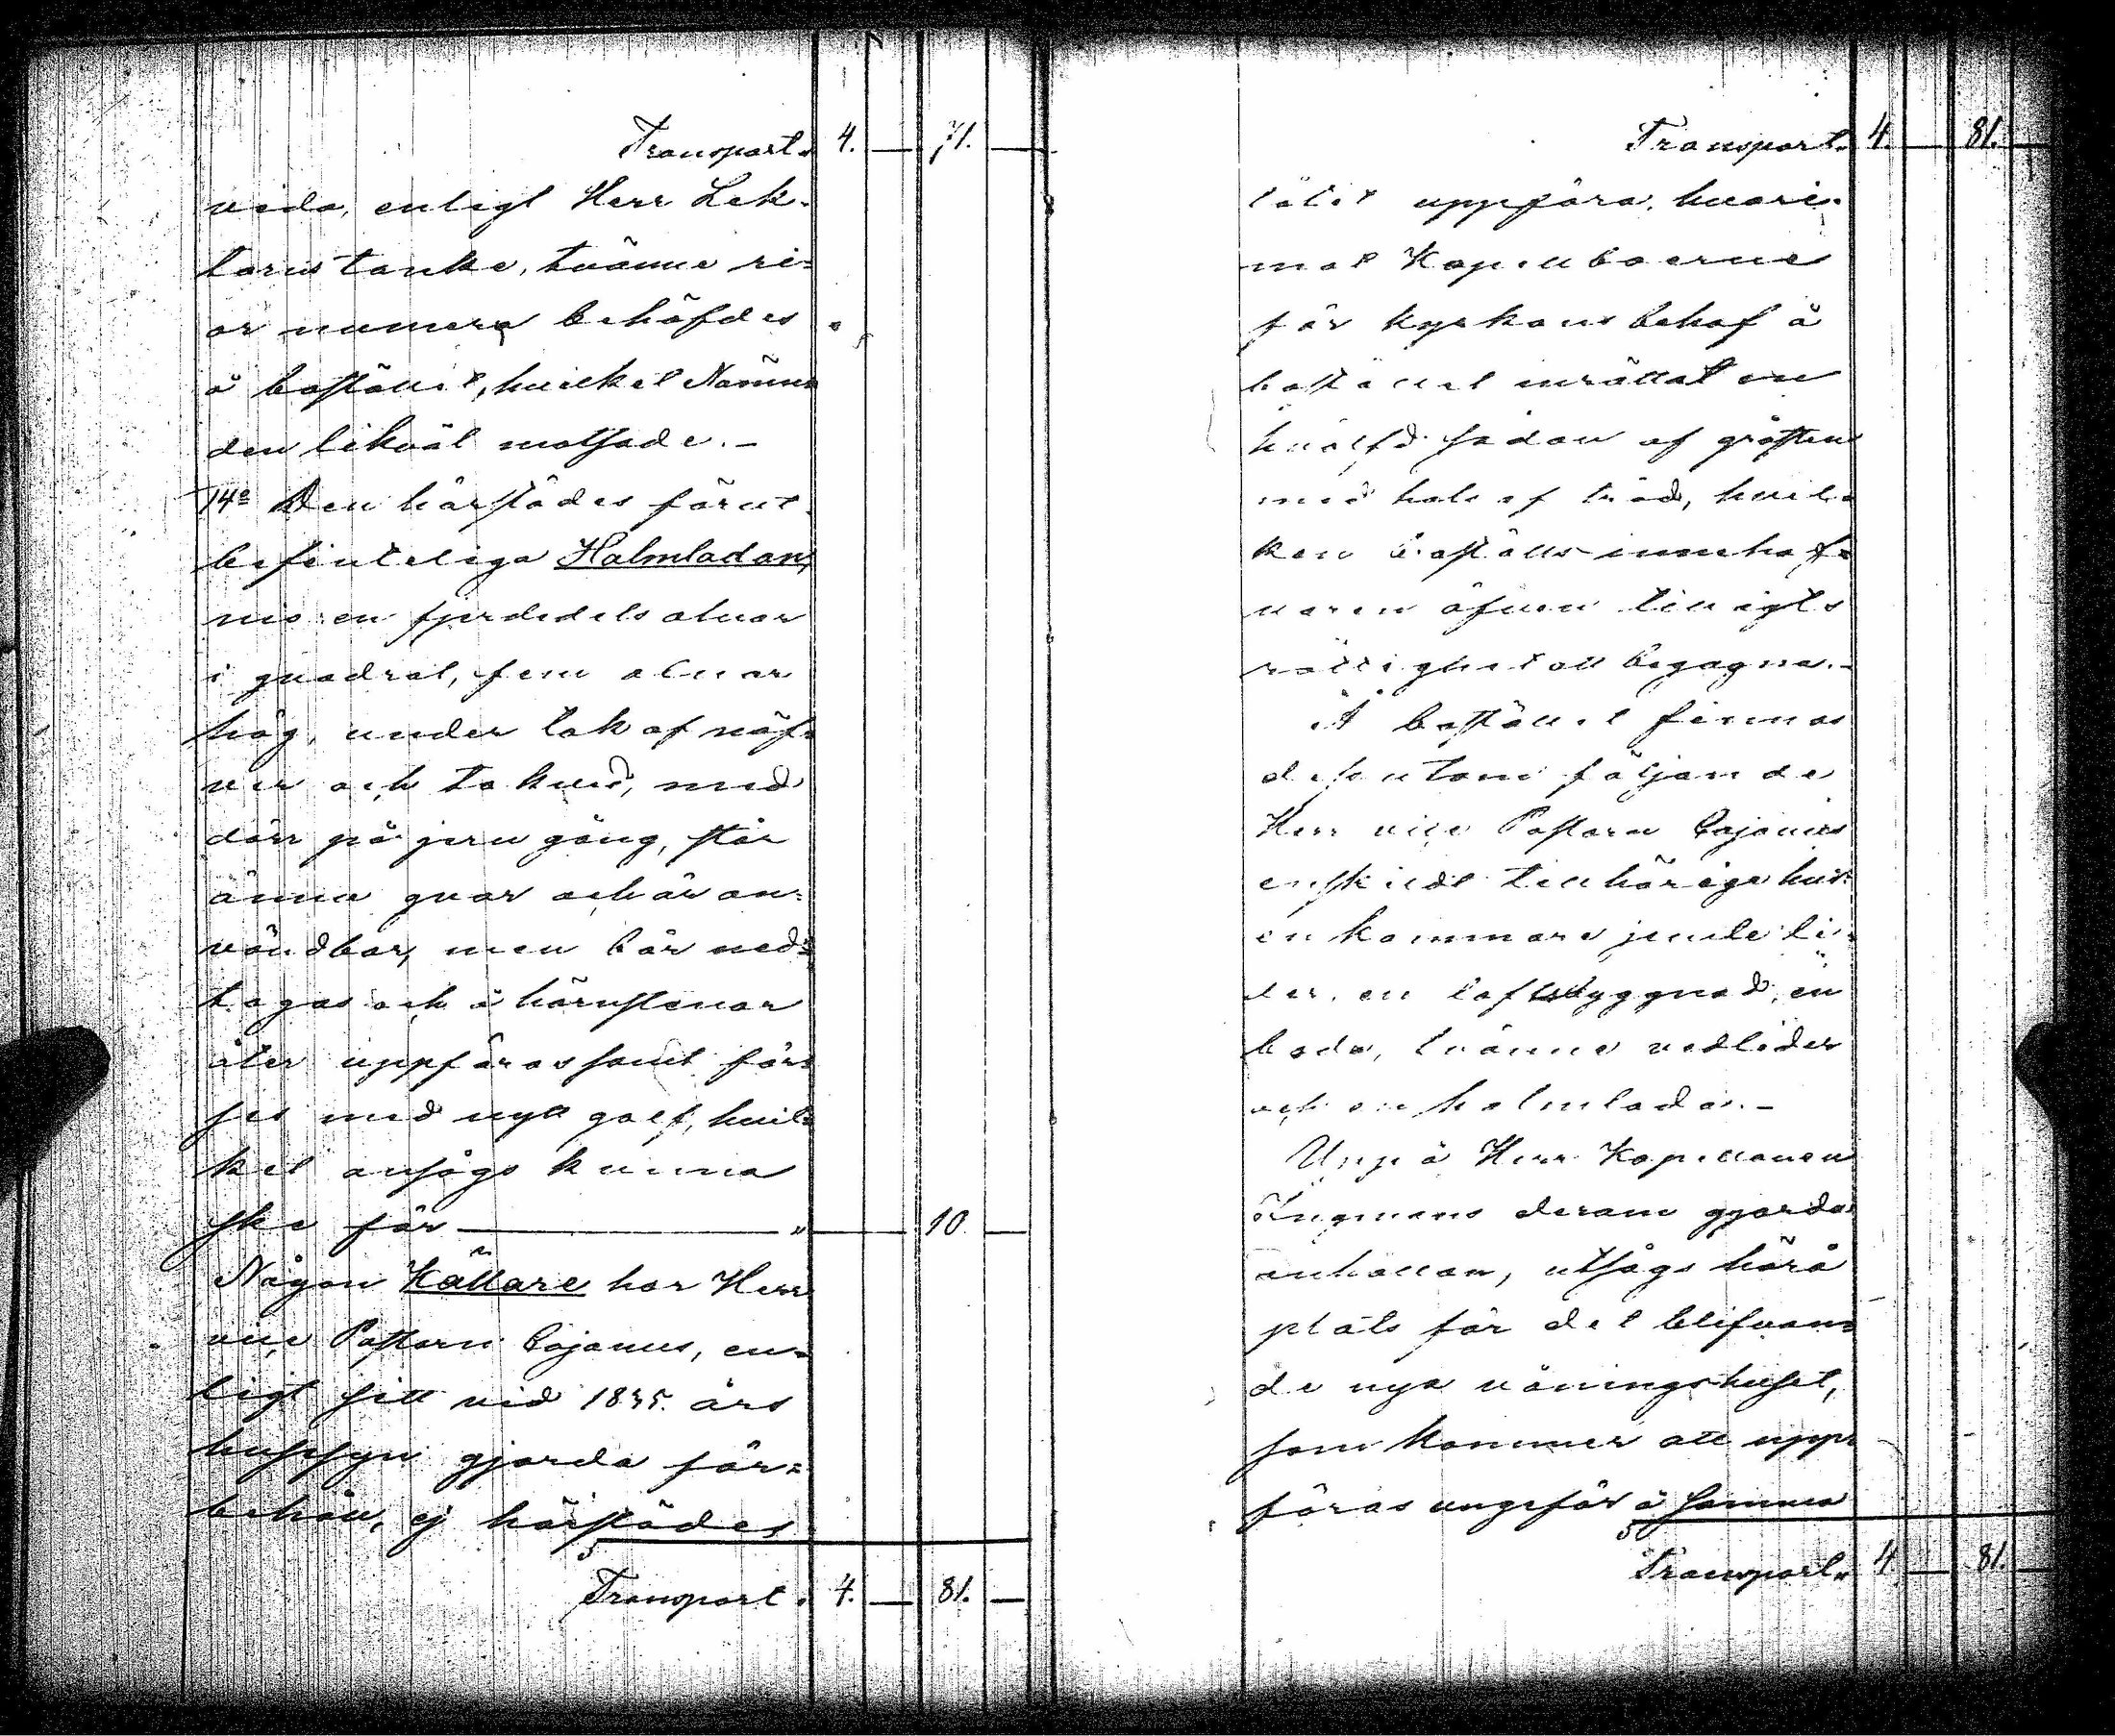 Transport. 4. — 71. —
vida, enligt Herr Lek-
torns tanke, tvänne ri=
or numera behöfdes
å bostället, hvilket Nämn=
den likväl motsade. —
14o Den härstädes förut
befinteliga Halmladan,
nio en fjerdedels alnar
i quadrat, fem alnar
hög, under tak af näf=
ver och takved, med
dörr på jern gång, står
ännu qvar och är an=
vändbar, men bör ned=
tagas och å hörnstenar
åter uppföras samt för=
ses med nytt golf, hvil=
ket ansågs kunna
ske för — " — 10 —
Någon Källare har Herr
vice Pastorn Cajanus, en=
ligt sitt vid 1835. års
hussyn gjorda för=
behåll, ej härstädes
Transport. 4. — 81. —
Transport. 4. — 81. —
låtit uppföra, hvari=
mot Kapellboerne
för kyrkans behof å
bostället inrättat en
hvälfd sådan af gråsten
med hals af träd, hvil=
ken boställs-innehaf=
varen äfven tillagts
rättighet att begagna. —
Å bostället finnas
dessutom följande
Herr vice Pastorn Cajanus
enskildt tillhöriga hus:
en kammare jemte li=
der, en loftsbyggnad, en
bod, tvänne vedlider
och en halmlada. —
Uppå Herr Kapellanen
Ingmans derom gjorda
anhållan, utsågs härå
plats för det blifvan=
de nya våningshuset,
som kommer att upp=
föras ungefär å samma
Transport. 4. — 81. —